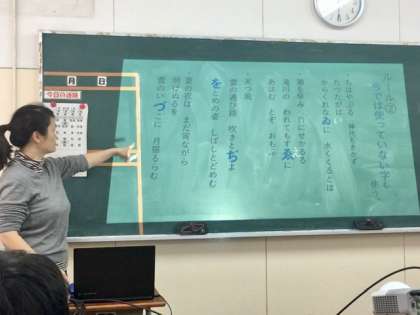 ルール②
今では使っていない字も
使う。
・ちはやぶる 神代もきかず
たつたがは
からくれなゐに 水くくるとは
・瀬を早み 岩にせかるる
滝川の われてもすゑに
あはむ とぞ おもふ
・天つ風
雲の通ひ路 吹きとぢよ
をとめの姿 しばしとどめむ
・夏の夜は まだ宵ながら
明けぬるを
雲のいづこに 月宿るらむ
月 日